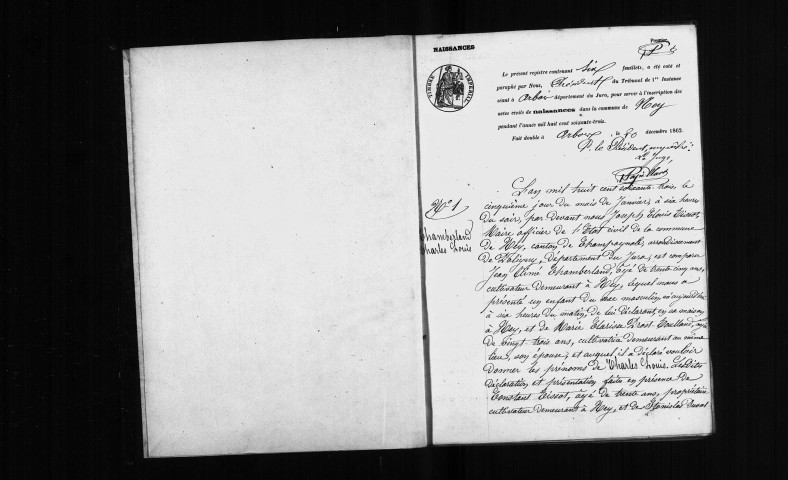 NAISSANCES
Premier
TIMBRE IMPÉRIAL
Le présent registre contenant Six feuillets, a été coté et
paraphé par Nous, Président du Tribunal de 1re Instance
séant à Arbois département du Jura, pour servir à l'inscription des
actes civils de naissances dans la commune de Ney
pendant l'année mil huit cent soixante-trois.
Fait double à Arbois, le 20 décembre 1862.
P. le Président, empêché.
Le Juge,
N° 1
Chamberland
Charles Louis
L'an mil huit cent soixante trois, le
cinquième jour du mois de Janvier, à six heures
du soir, par devant nous Joseph Eloüs Tissot,
Maire officier de l'Etat civil de la commune
de Ney, canton de Champagnole, arrondissement
de Poligny, département du Jura; est comparu
Jean Climé Chamberland, âgé de trente cinq ans,
cultivateur demeurant à Ney, lequel nous a
présenté un enfant du sexe masculin né aujourd'hui
à six heures du matin, de lui déclarant, en sa maison
à Ney, et de Marie Clarisse Prost Boulland, âgée
de vingt trois ans, cultivatrice demeurant au même
lieu, son épouse; et auquel il a déclaré vouloir
donner les prénoms de Charles Louis. Lesdites
déclaration et présentation faites en présence de
Constant Tissot, âgé de trente ans, propriétaire
cultivateur demeurant à Ney, et de Stanislas